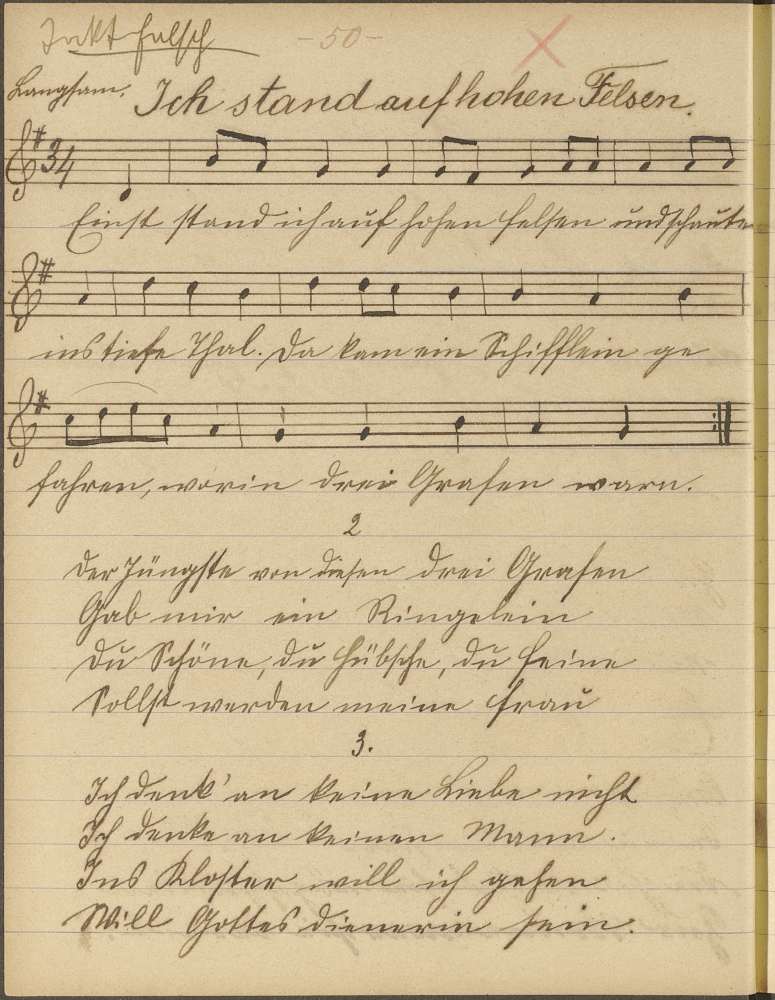 Takt falsch
- 50 -
Langsam. Ich stand auf hohen Felsen.
3/4
Einst stand ich auf hohen Felsen und schaute
ins tiefe Thal. Da kam ein Schifflein ge
fahren, worin drei Grafen warn.
2
Der Jüngste von diesen drei Grafen
Gab mir ein Ringelein
Du Schöne, du Hübsche, du Feine
Sollst werden meine Frau
3.
Ich denk' an keine Liebe nicht
Ich denke an keinen Mann.
Ins Kloster will ich gehen
Will Gottes dienerin sein.